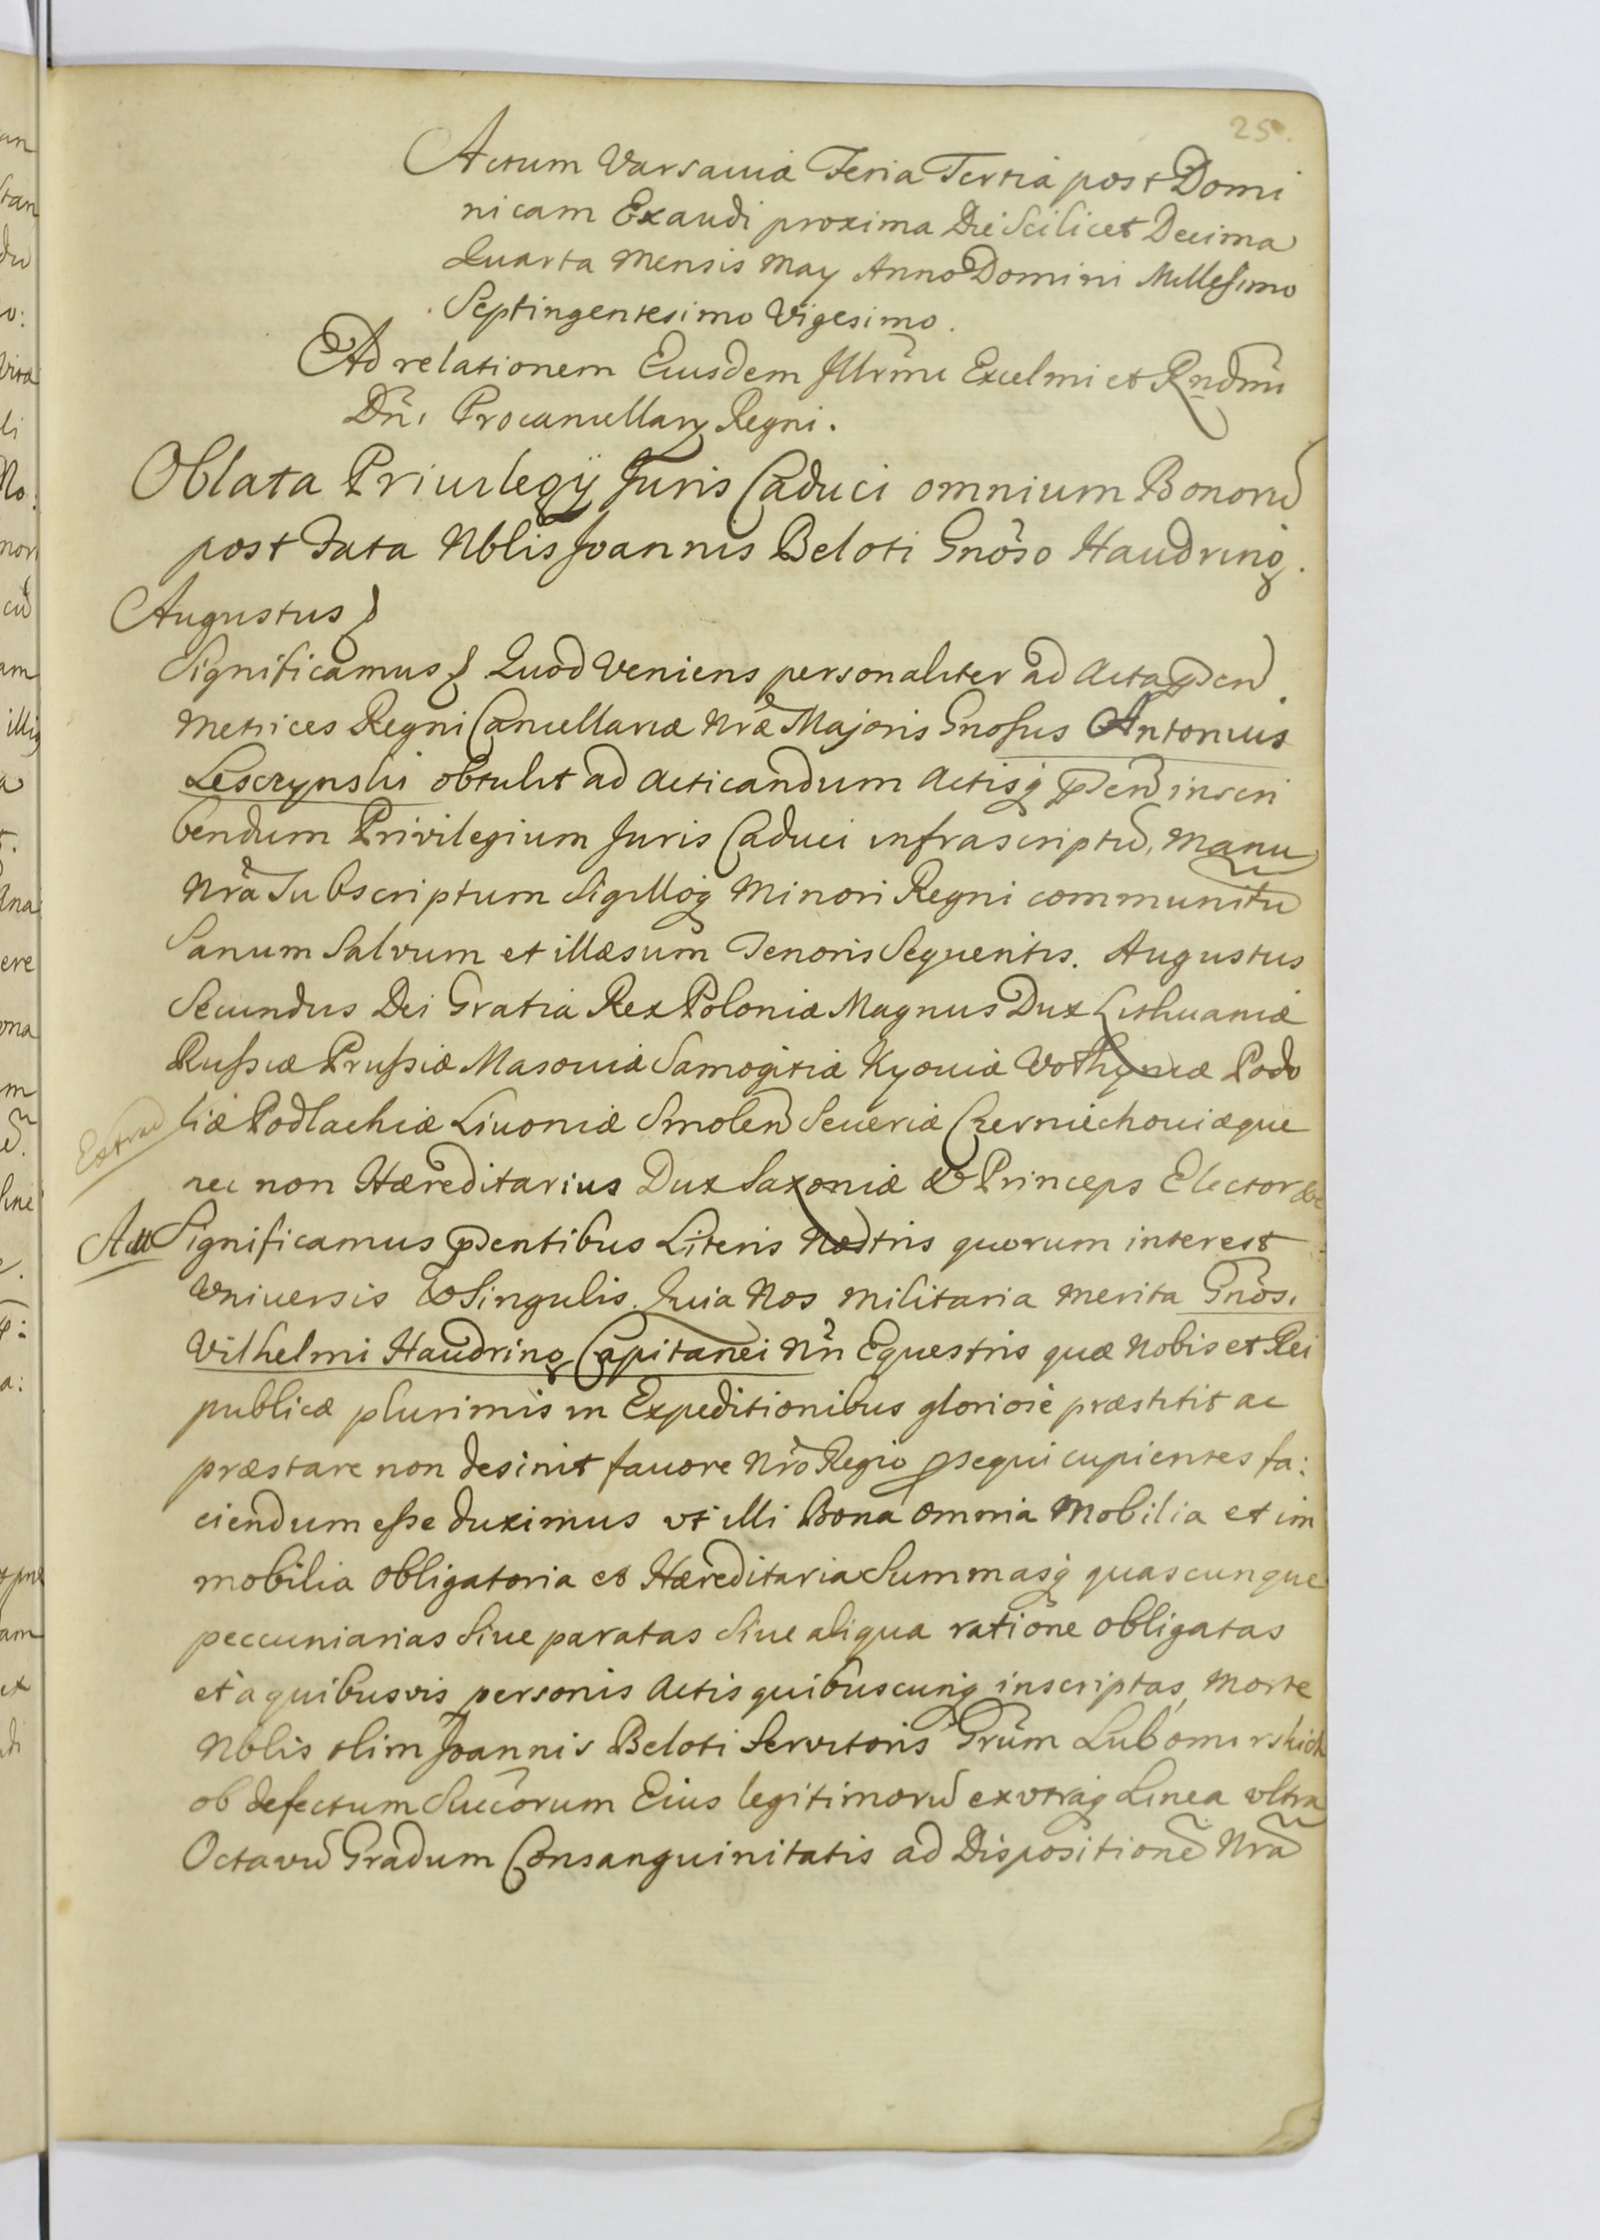 25.
Actum Varsaviæ Feria Tertia post Domi
nicam Exaudi proxima Die Scilicet Decima
Quarta Mensis May Anno Domini Millesimo
Septingentesimo Vigesimo.
Ad relationem Eiusdem Illrm̃i Excelmi et Rndm̃i
Dñi Procancellary Regni.
Oblata Priuilegÿ Juris Caduci omnium Bonorũ
post Fata Nblis Joannis Beloti Gnõso Haudring.
Augustus
Significamus Quod Veniens personaliter ad Acta pñtĩ
Metrices Regni Cancellariæ Nrã Majoris Gnosus Antonius
Lesczynski obtulit ad acticandum Actisq̃ inscri
bendum Privilegium Juris Caduci infrascriptũ, Manu
Nrã Subscriptum Sigilloq̃ Minori Regni communitũ
Sanum Salvum et illæsum Tenoris Sequentis. Augustus
Secundus Dei Gratia Rex Poloniæ Magnus Dux Lithuaniæ
Russiæ Prussiæ Masouiæ Samogitiæ Kyouiæ Volhyniæ Podo
Extrad liæ Podlachiæ Liuoniæ Smolen Seueriæ Czerniechouiæque
nec non Hæreditarius Dux Saxoniæ & Princeps Elector &c
Significamus pñtibus Literis Nostris quorum interest
Vniuersis & Singulis. Quia Nos Militaria Merita Gnõsi
Vilhelmi Haudring Capitanei Nrĩ Equestris quæ Nobis et Rei
publicæ plurimis in Expeditionibus gloriose præstitit ac
præstare non desinit fauore Nrõ Regio psequi cupientes fa:
ciendum esse duximus vt illi Bona omnia Mobilia et im
mobilia obligatoria et Hæreditaria Summasq̃ quascunque
peccuniarias Siue paratas Siue aliqua ratione obligatas
et à quibusvis personis Actis quibuscunq̃ inscriptas, Morte
Nblis olim Joannis Beloti Servitoris Grũm Lubomirskich
ob defectum Succorum Eius legitimorũ ex vtraq̃ Linea vltra
Octavũ Gradum Consanguinitatis ad Dispositionẽ Nrã